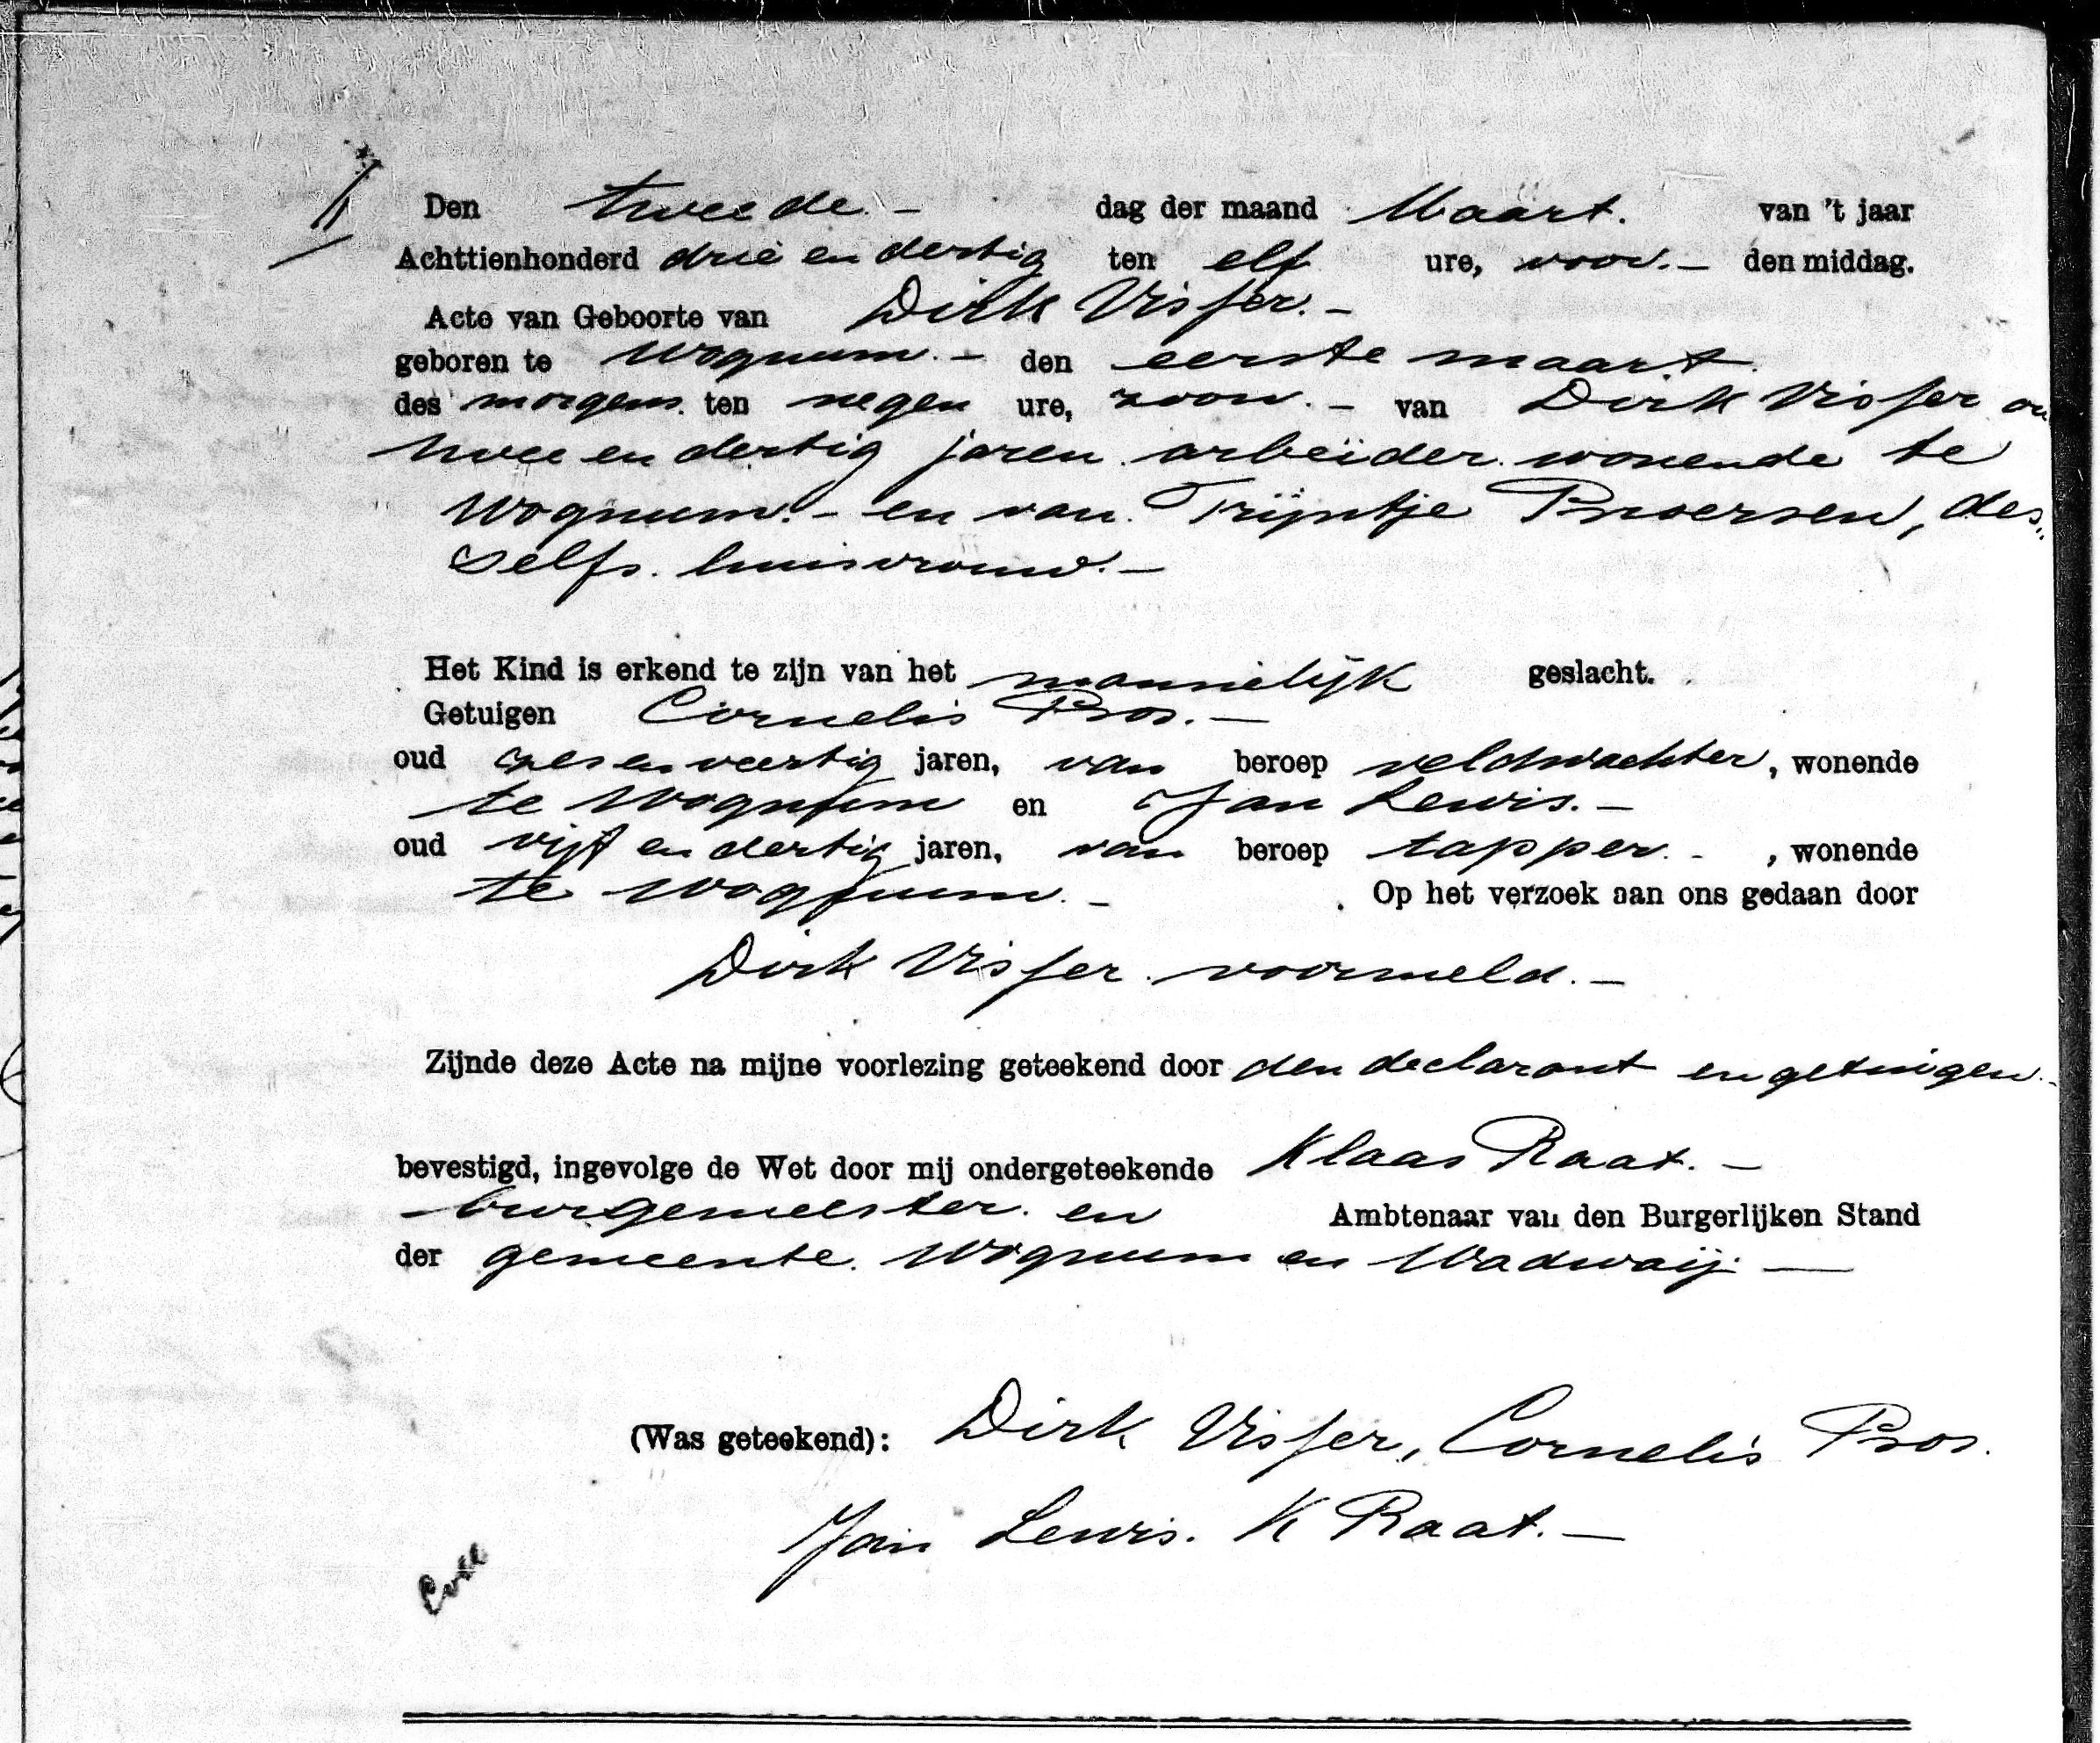 Den tweede. - dag der maand Maart. van 't jaar
Achttienhonderd drie en dertig ten elf ure, voor. - den middag.
Acte van Geboorte van Dirk Visser. -
geboren te Wognum. - den eerste maart.
des morgens. ten negen ure, zoon. - van Dirk Visser ou
twee en dertig jaren. arbeider. wonende te
Wognum. - en van. Trijntje, des„
zelfs. huisvrouw. -
Het Kind is erkend te zijn van het mannelijk geslacht.
Getuigen Cornelis Pros. -
oud zes en veertig jaren, van beroep veldwachter, wonende
te Wognum en Jan Lewis. -
oud vijf en dertig jaren, van beroep tapper. - , wonende
te Wognum. - . Op het verzoek aan ons gedaan door
Dirk Visser. voormeld. -
Zijnde deze Acte na mijne voorlezing geteekend door den declarant en getuigen. -
bevestigd, ingevolge de Wet door mij ondergeteekende Klaas Raat. -
- burgemeester. en Ambtenaar van den Burgerlijken Stand
der gemeente. Wognum en Wadwaij. -
(Was geteekend): Dirk Visser, Cornelis Pros.
Jan Lewis. K Raat. -